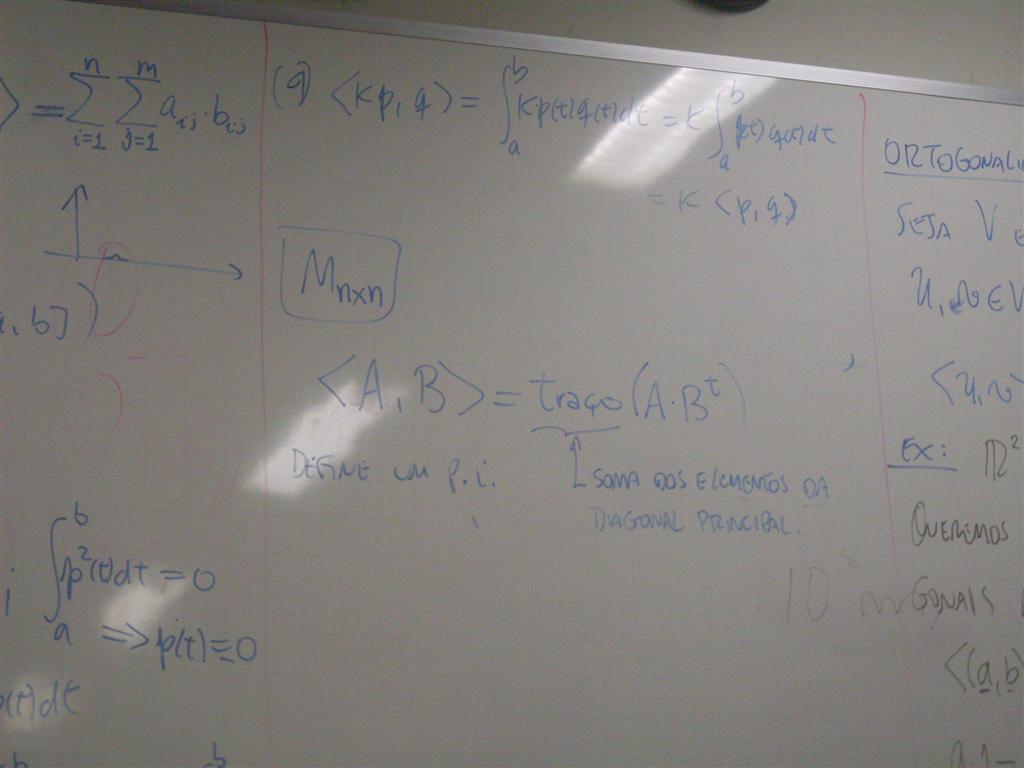 ⟩ = ∑_{i=1}^{n} ∑_{j=1}^{m} a_{ij} · b_{ij}
, b]
∫_a^b p²(t)dt = 0
a ⟹ p(t) = 0
p(t)dt
b
⟨Kp, q⟩ = ∫_a^b Kp(t)q(t)dt = K ∫_a^b p(t)q(t)dt
= K ⟨p, q⟩
M_{n×n}
⟨A, B⟩ = traço(A·B^t)
DEFINE UM p.i.
SOMA DOS ELEMENTOS DA
DIAGONAL PRINCIPAL.
10^8
ORTOGONALI
SEJA V
u, v ∈ V
⟨u, v⟩
EX: ℝ²
QUEREMOS
GONAIS
⟨(a, b)